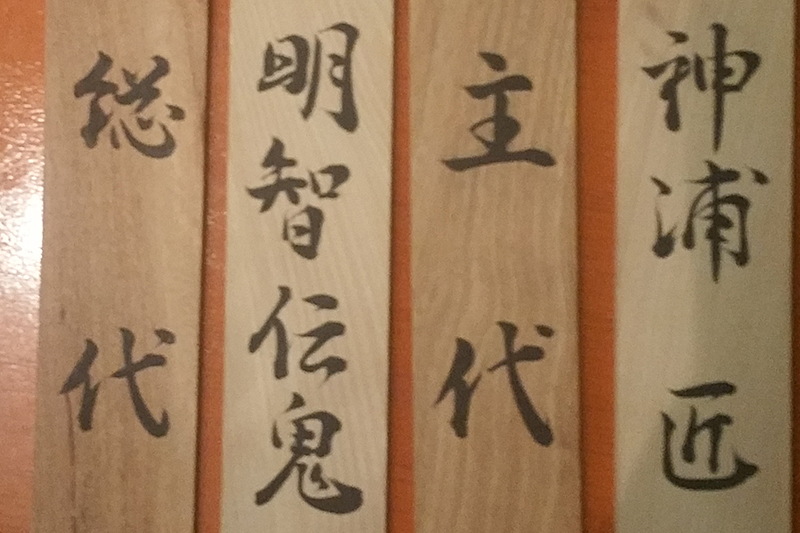 神浦 匠
主代
明智伝鬼
総代